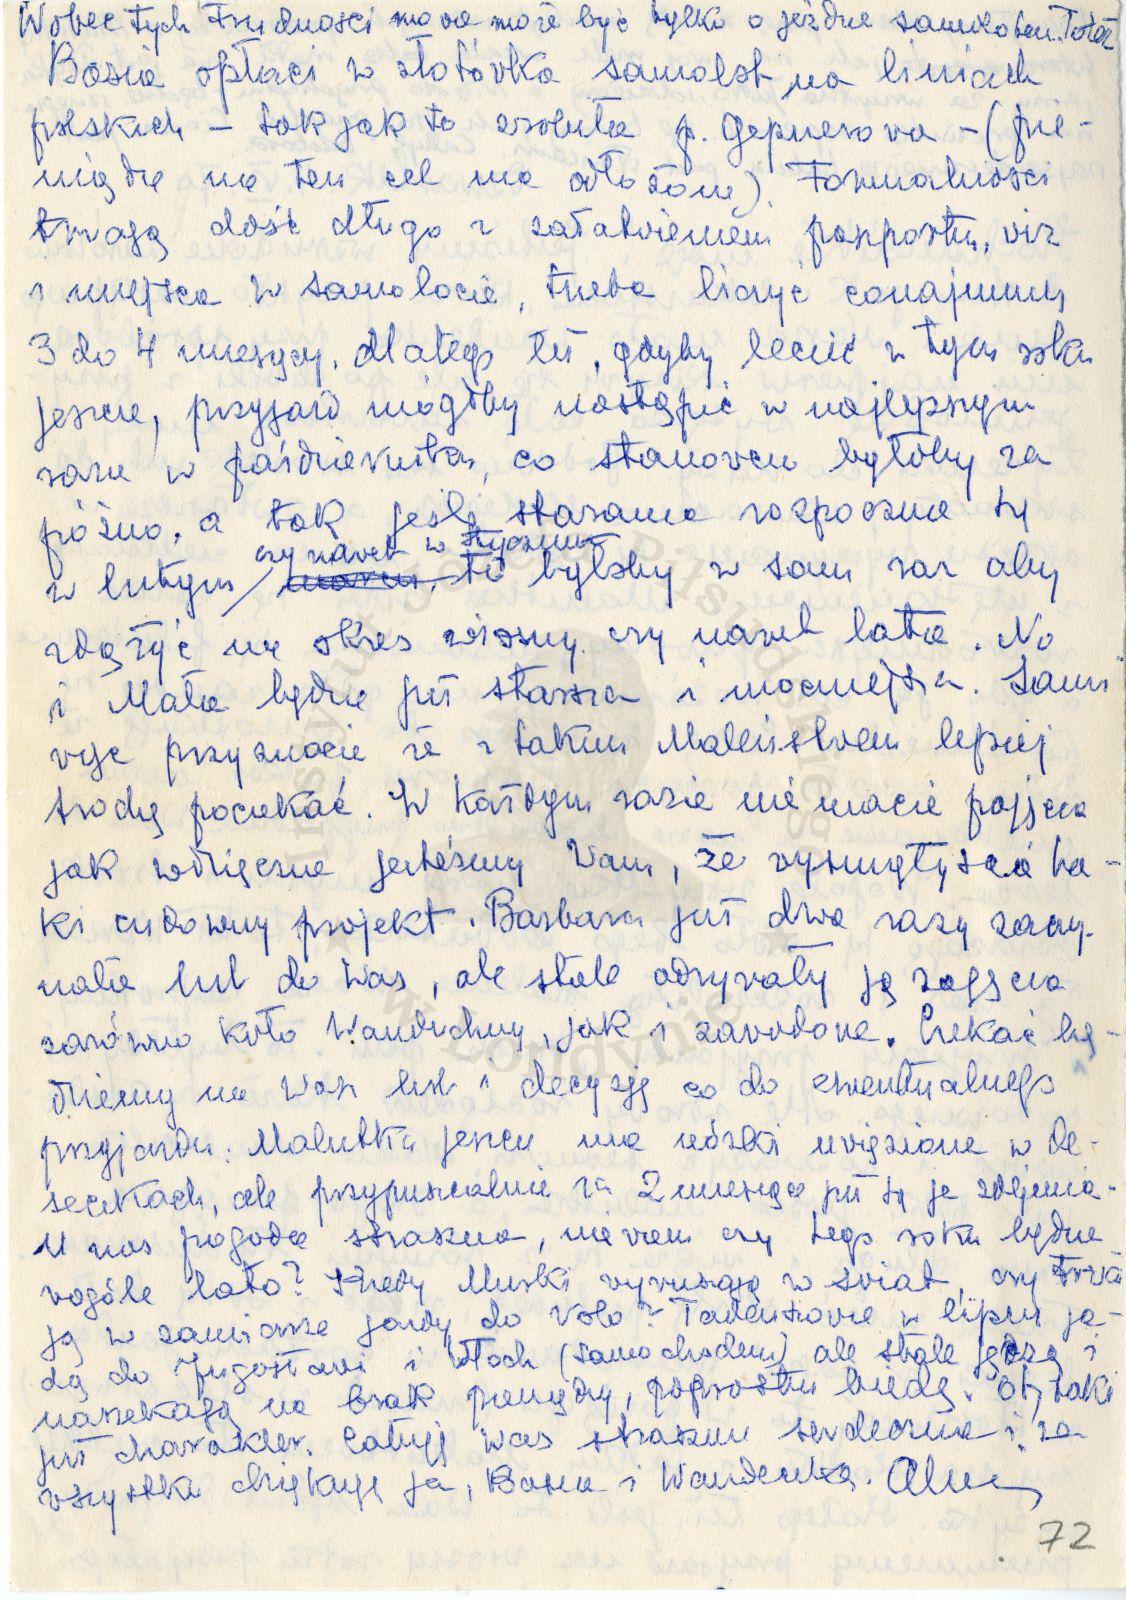 Wobec tych trudności mowa może być tylko o jeździe samolotem. Toteż
Basia opłaci w złotówka samolot na liniach
polskich – tak jak to zrobiła p. Gepnerowa – (pie-
niądze na ten cel ma odłożone). Formalności
trwają dość długo z załatwieniem paszportu, viz
i miejsca w samolocie, trzeba liczyć conajmniej
3 do 4 miesięcy, dlatego też, gdyby lecieć w tym roku
jeszcze, przyjazd mógłby nastąpić w najlepszym
razie w październiku, co stanowczo byłoby za
późno, a tak jeśli starania rozpocznie się
czy nawet w styczniu
w lutym / to byłoby w sam raz aby
zdążyć na okres wiosny czy nawet lata. No
i Mała będzie już starsza i mocniejsza. Sami
więc przyznacie że z takim Maleństwem lepiej
trochę poczekać. W każdym razie nie macie pojęcia
jak wdzięczne jesteśmy Wam, że wysunęłyście ta-
ki cudowny projekt. Barbara już dwa razy zaczy-
nała list do Was, ale stale odrywały ją zajęcia
zarówno koło Wanduchny, jak i zawodowe. Czekać bę-
dziemy na Wasz list i decyzję co do ewentualnego
przyjazdu. Malutka jeszcze ma nóżki uwięzione w de-
seczkach, ale przypuszczalnie za 2 miesiące już się je zdejmie.
U nas pogoda straszna, nie wiem czy tego roku będzie
wogóle lato? Kiedy Muszki wyruszają w świat, czy
ją w zamiarze jazdy do Volo? Tadeuszowie w lipcu ja-
dą do Jugosławi i Włoch (samochodem) ale stale jęczą i
narzekają na brak pieniędzy, poprostu biedą. Ot, taki
już charakter. Całuję Was strasznie serdecznie i za
wszystko dziękuję ja, Basia i Wandeczka.
72
Instytut Józefa Piłsudskiego
w Londynie